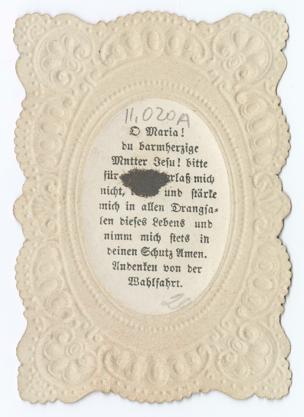 11,020A
O Maria!
du barmherzige
Mutter Jesu! bitte
für rlaß mich
nicht, und stärke
mich in allen Drangsa-
len dieses Lebens und
nimm mich stets in
deinen Schutz Amen.
Andenken von der
Wahlfahrt.